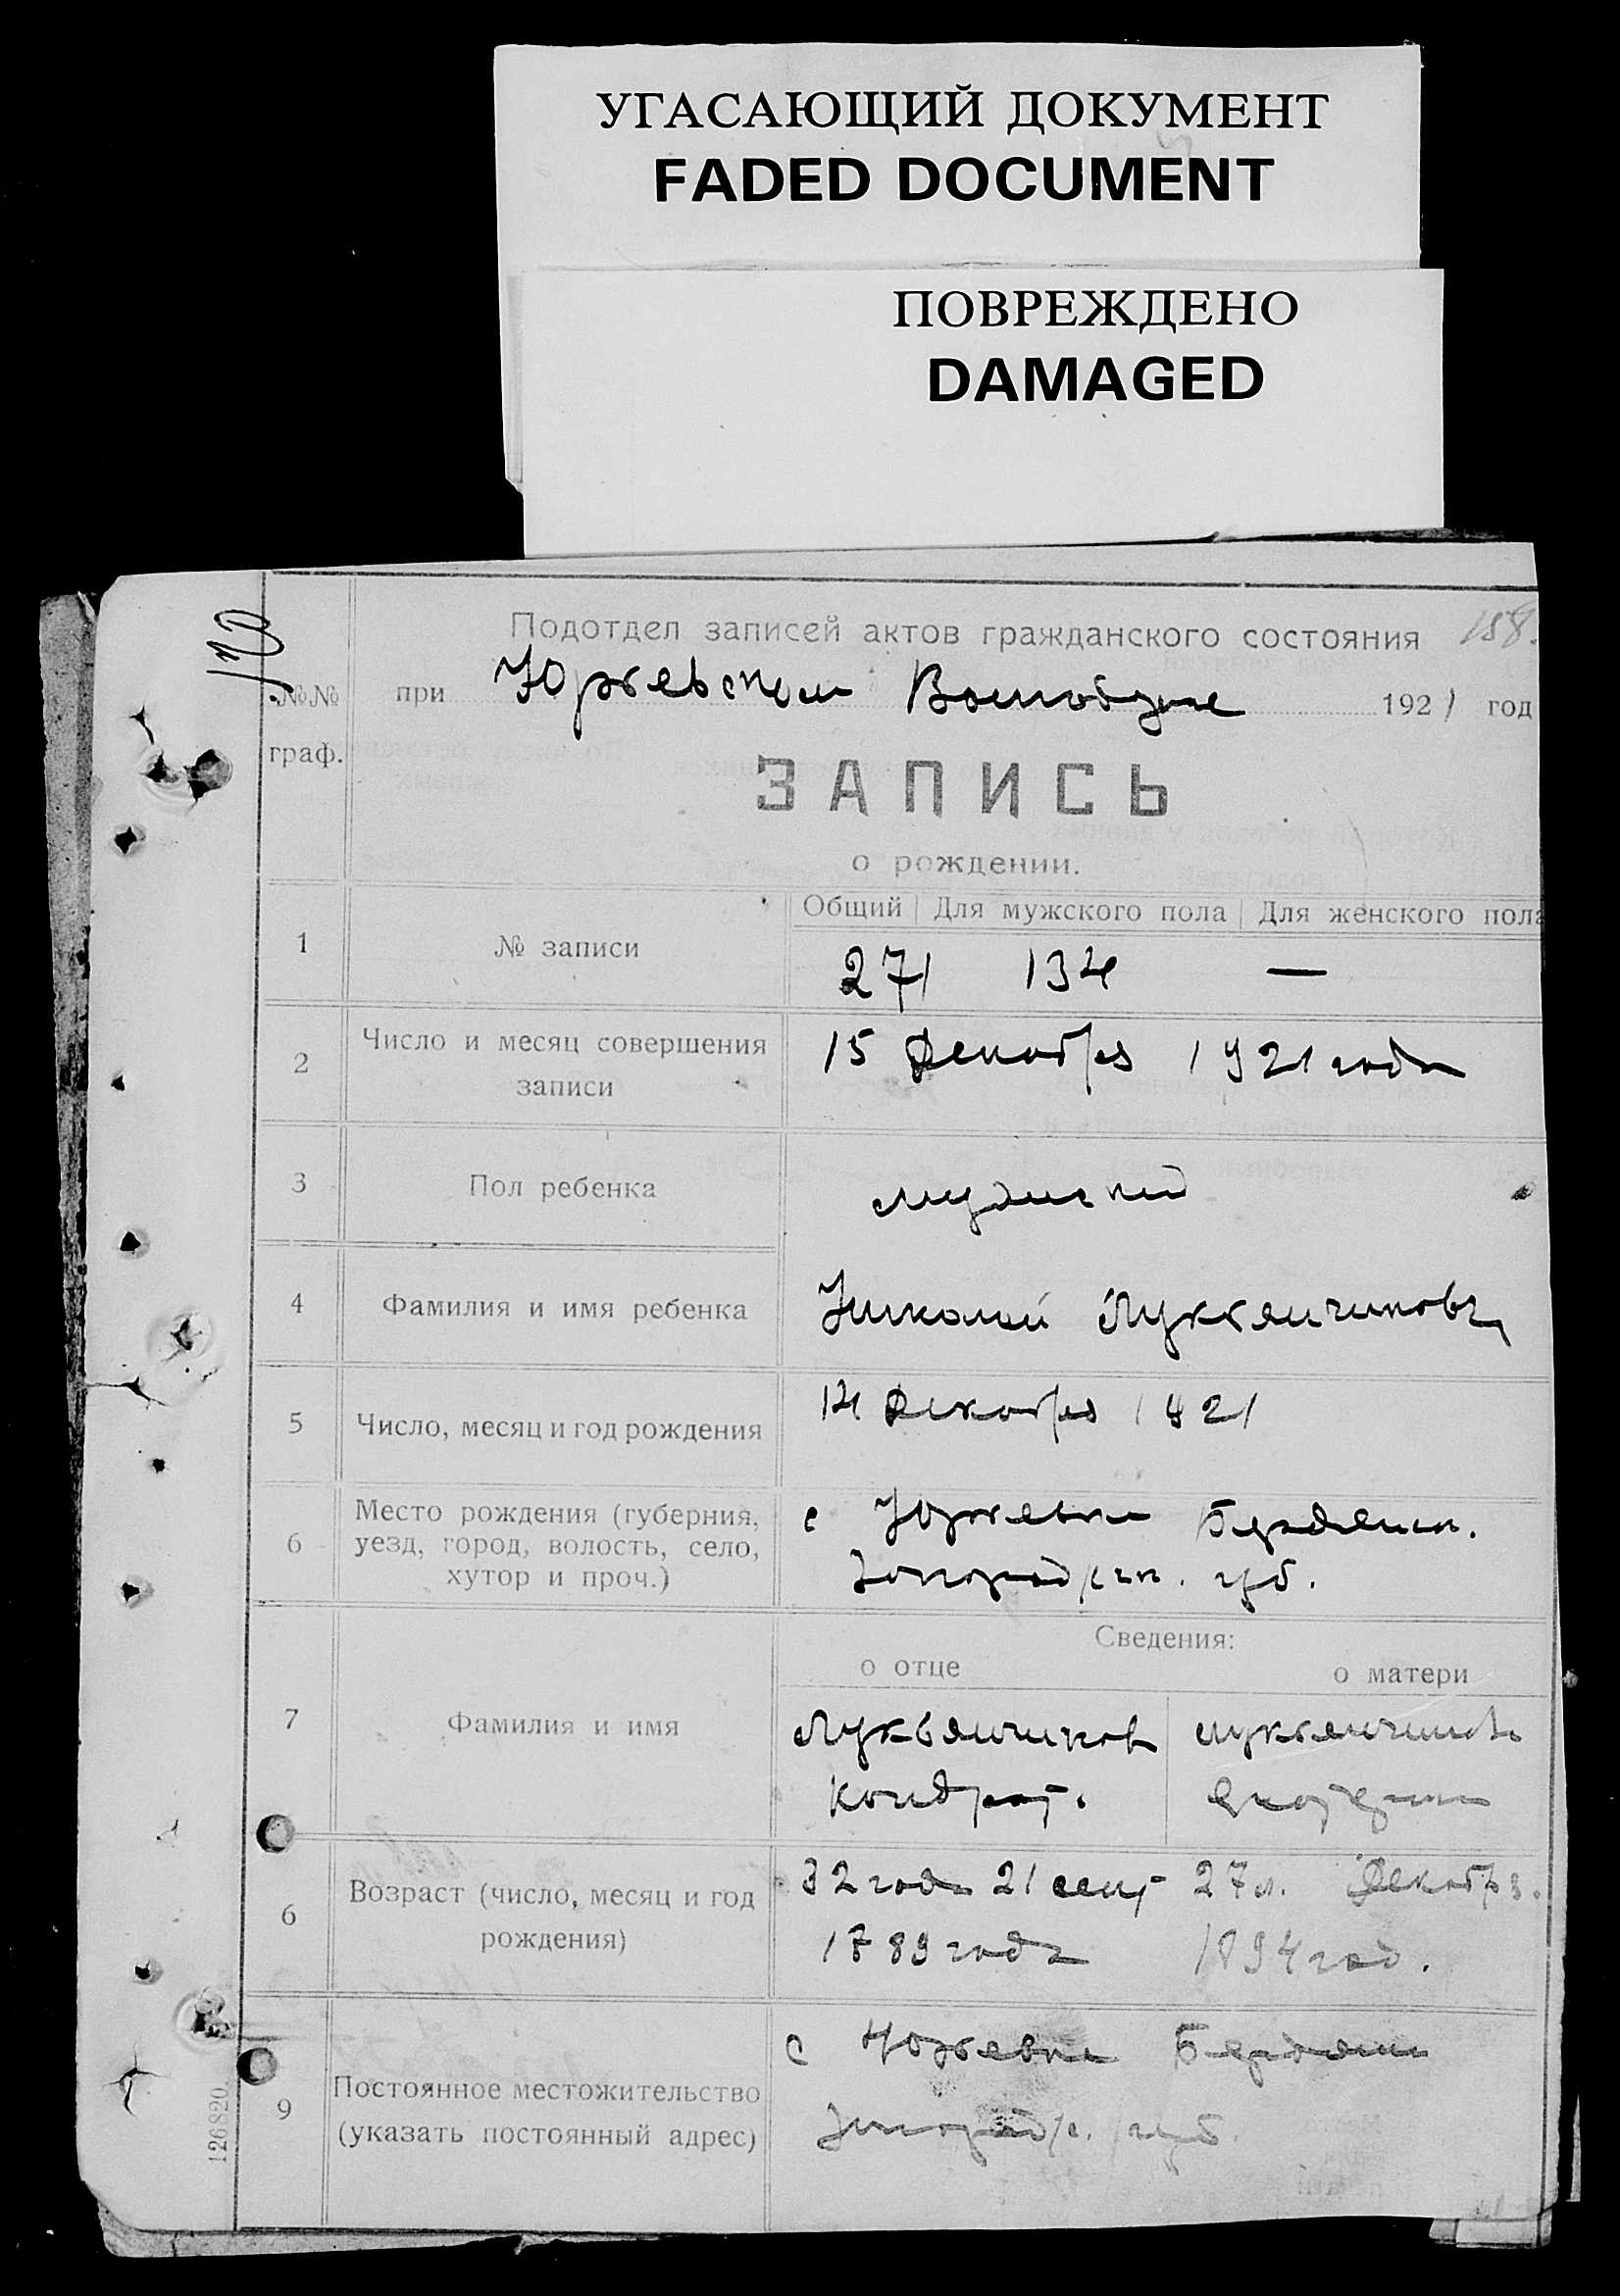 УГАСАЮЩИЙ ДОКУМЕНТ
FADED DOCUMENT
ПОВРЕЖДЕНО
DAMAGED
158.
Подотдел записей актов гражданского состояния
№№ при Юрьевском 1921 год
граф.
ЗАПИСЬ
о рождении.
Общий Для мужского пола Для женского пола
1 № записи 271 134 —
2 Число и месяц совершения
записи
15 Декабря 1921 года
3 Пол ребенка мужской
4 Фамилия и имя ребенка Николай Лукьянчиковъ
5 Число, месяц и год рождения 14 Декабря 1921
6 Место рождения (губерния,
уезд, город, волость, село,
хутор и проч.)
с Юрьевки Бердянск.
губ.
Сведения:
о отце о матери
7 Фамилия и имя
Лукьянчиков Лукьянчикова
Кондрат.
6 Возраст (число, месяц и год
рождения)
32 года 21 сент 27 л. Декабря.
1889 года 1894 год.
9 Постоянное местожительство
(указать постоянный адрес)
с Юрьевки Бердянск
губ.
126820.